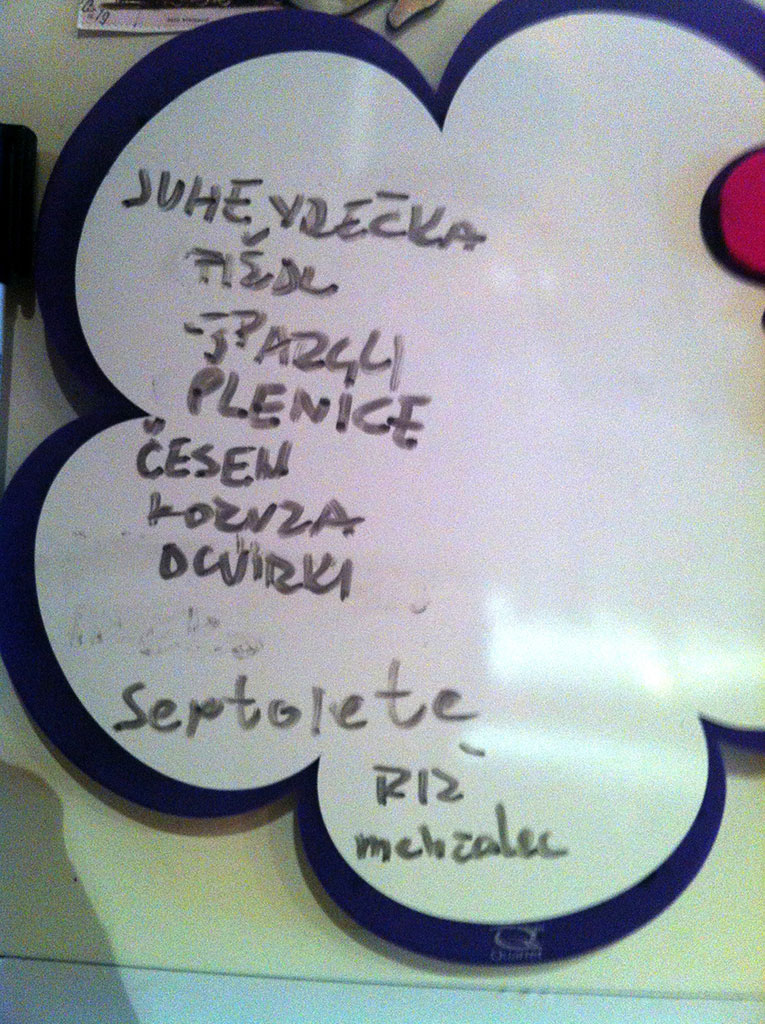 JUHE VREČKA
ŠPARGLJI
PLENICE
ČESEN
KORUZA
OCVIRKI
septolete
RIŽ
mehčalec
Quartet